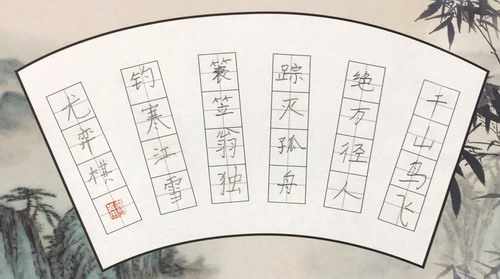 千山鸟飞
绝万径人
踪灭孤舟
蓑笠翁独
钓寒江雪
尤弈棋